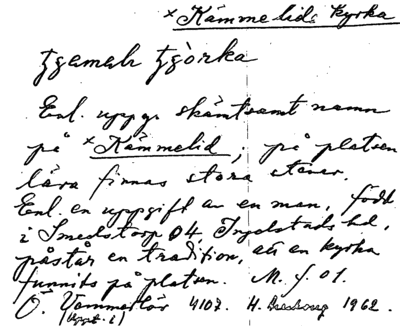 × Kämmelids kyrka
Enl. uppg. skämtsamt namn
på × Kämmelid; på platsen
lära finnas stora stenar.
Enl. en uppgift av en man, född
i Smedstorp 04, Ingelstads hd,
påstår en tradition, att en kyrka
funnits på platsen. M. f. 01.
Ö. Vemmerlöv 4107. H. 1962.
(Uppt. 2)